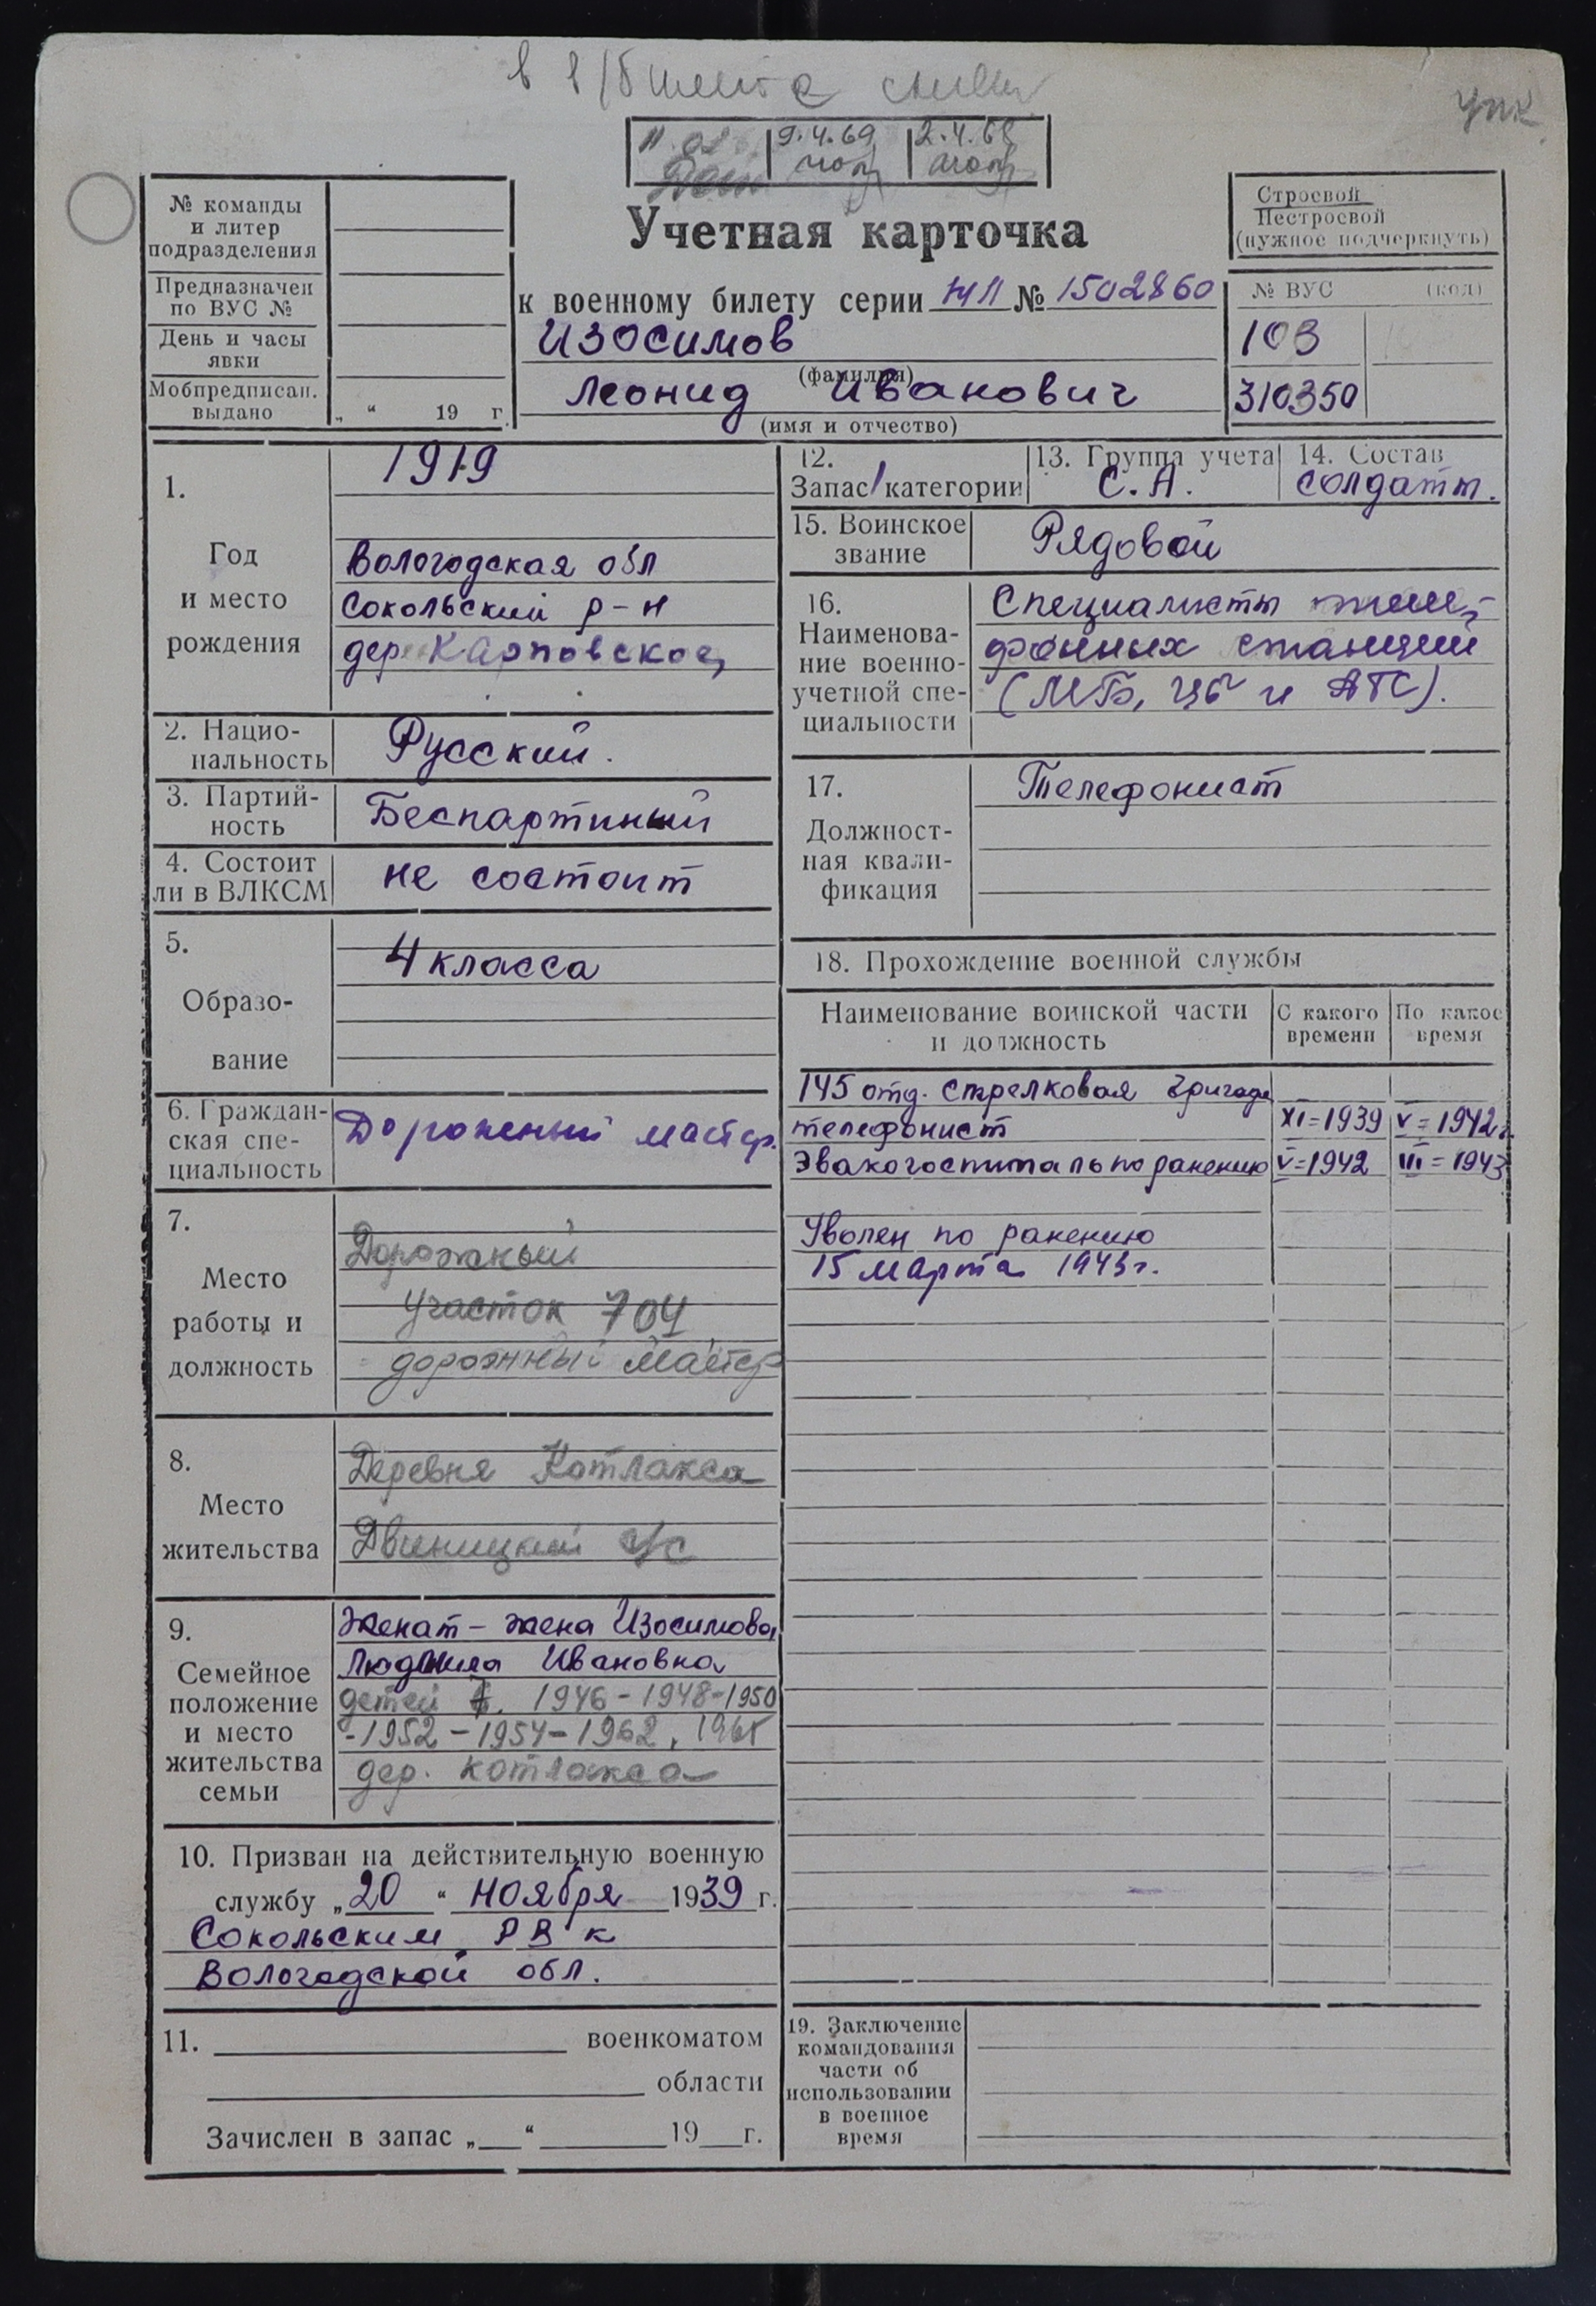 упк
9.4.69 2.4.68
№ команды и литер подразделения
Предназначен по ВУС №
День и часы явки
Мобпредписан. выдано „ “ 19 г.
Учетная карточка
к военному билету серии НЛ № 1502860
Изосимов
(фамилия)
Леонид Иванович
(имя и отчество)
Строевой
Нестроевой
(нужное подчеркнуть)
№ ВУС (код)
103
310350
1. Год и место рождения
1919
Вологодская обл
Сокольский р-н
дер Карповское
2. Национальность Русский.
3. Партийность Беспартиный
4. Состоит ли в ВЛКСМ не состоит
5. Образование 4 класса
6. Гражданская специальность Дорожный мастер.
7. Место работы и должность
Дорожный
участок 704
дорожный мастер
8. Место жительства
Деревня Котлакса
Двиницкий с/с
9. Семейное положение и место жительства семьи
Женат - жена Изосимова
Людмила Ивановна
детей 7. 1946-1948-1950
-1952-1954-1962, 1965
дер. Котлакса
10. Призван на действительную военную
службу „20“ ноября 1939 г.
Сокольским РВК
Вологодской обл.
11. военкоматом
области
Зачислен в запас „ “ 19 г.
12. Запас 1 категории
13. Группа учета С.А.
14. Состав солдатт.
15. Воинское звание Рядовой
16. Наименование военно-учетной специальности
Специалисты
фонных станций
(МБ, ЦБ и АТС).
17. Должностная квалификация Телефонист
18. Прохождение военной службы
Наименование воинской части и должность С какого времени По какое время
145 отд. стрелковая бригада
телефонист XI=1939 V=1942г.
Эвакогоспиталь по ранению V=1942 III=1943
Уволен по ранению
15 марта 1943г.
19. Заключение командования части об использовании в военное время